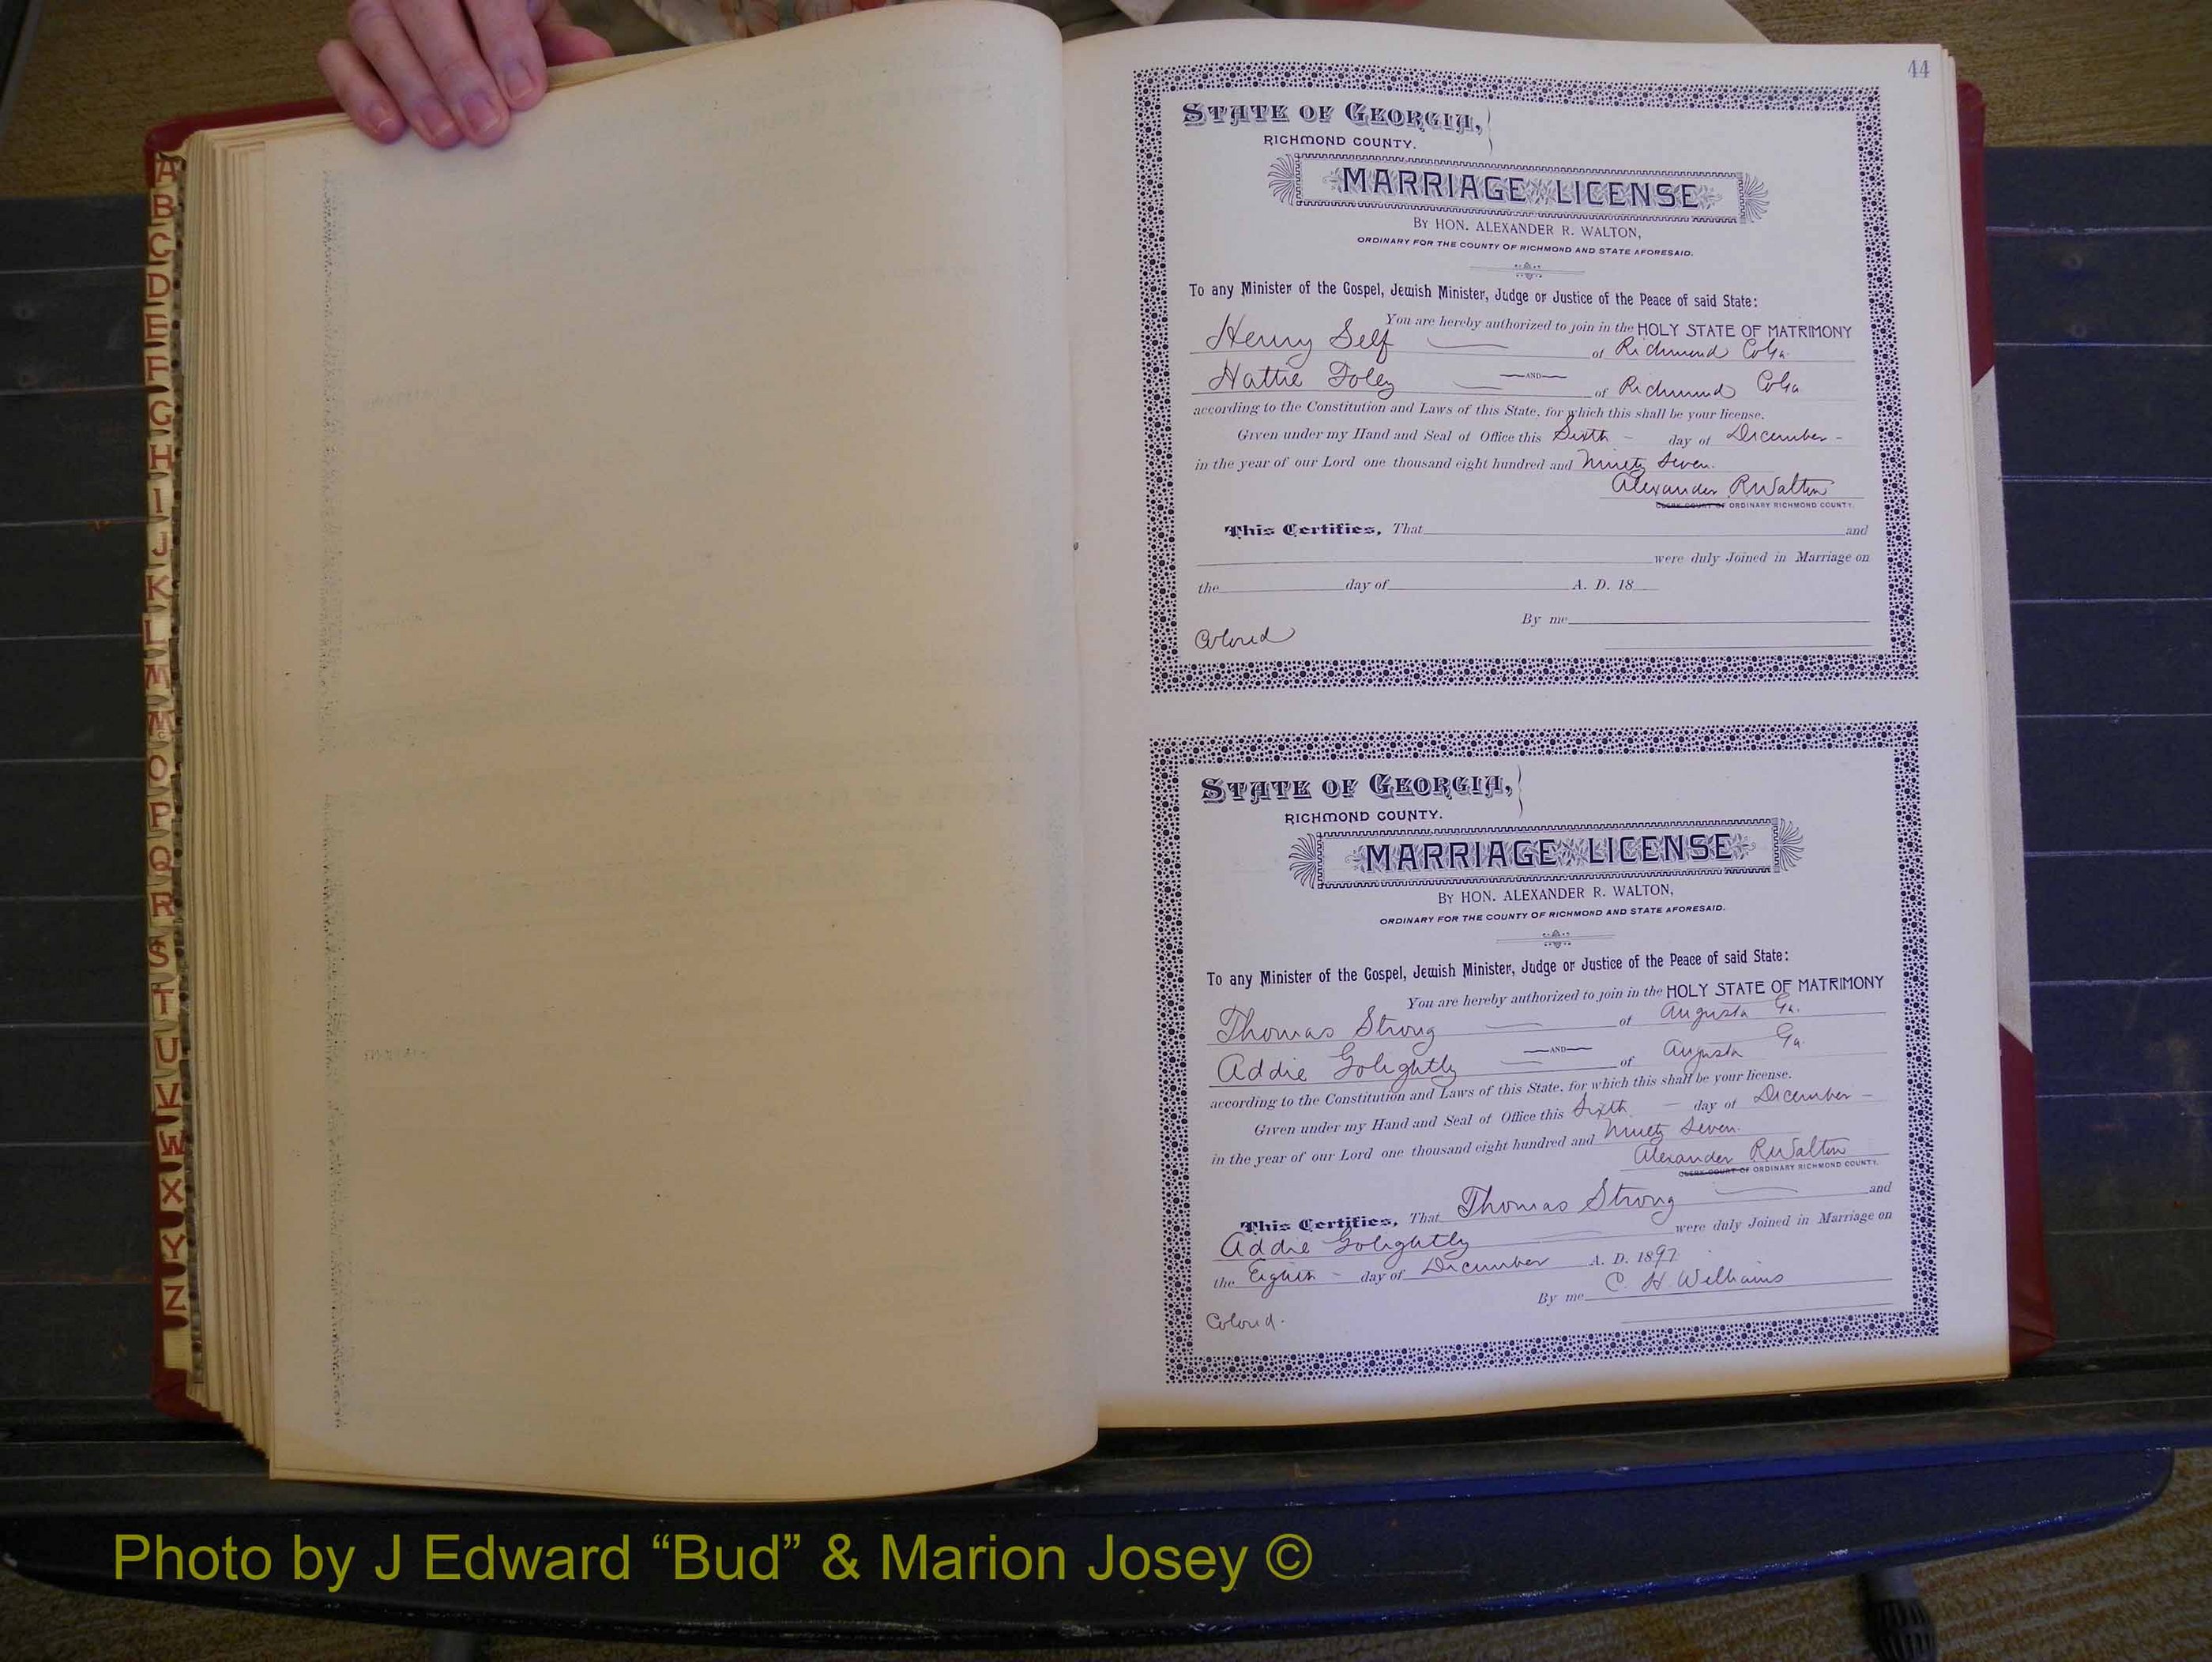 A
B
C
D
E
F
G
H
I
J
K
L
M
Mc
O
P
Q
R
S
T
U
V
W
X
Y
Z
44
STATE OF GEORGIA,
RICHMOND COUNTY.
MARRIAGE LICENSE
BY HON. ALEXANDER R. WALTON,
ORDINARY FOR THE COUNTY OF RICHMOND AND STATE AFORESAID.
To any Minister of the Gospel, Jewish Minister, Judge or Justice of the Peace of said State:
You are hereby authorized to join in the HOLY STATE OF MATRIMONY
Henry Self of Richmond Co Ga
AND
Hattie Foley of Richmond Co Ga
according to the Constitution and Laws of this State, for which this shall be your license.
Given under my Hand and Seal of Office this Sixth - day of December -
in the year of our Lord one thousand eight hundred and Ninety Seven.
Alexander R Walton
CLERK COURT OF ORDINARY RICHMOND COUNTY.
This Certifies, That and
were duly Joined in Marriage on
the day of A. D. 18
By me
Colored
STATE OF GEORGIA,
RICHMOND COUNTY.
MARRIAGE LICENSE
BY HON. ALEXANDER R. WALTON,
ORDINARY FOR THE COUNTY OF RICHMOND AND STATE AFORESAID.
To any Minister of the Gospel, Jewish Minister, Judge or Justice of the Peace of said State:
You are hereby authorized to join in the HOLY STATE OF MATRIMONY
Thomas Strong of Augusta Ga.
AND
Addie Golightly of Augusta Ga.
according to the Constitution and Laws of this State, for which this shall be your license.
Given under my Hand and Seal of Office this Sixth - day of December -
in the year of our Lord one thousand eight hundred and Ninety Seven.
Alexander R Walton
CLERK COURT OF ORDINARY RICHMOND COUNTY.
This Certifies, That Thomas Strong and
Addie Golightly were duly Joined in Marriage on
the Eighth - day of December A. D. 1897
By me C. H. Williams
Colored.
Photo by J Edward “Bud” & Marion Josey ©